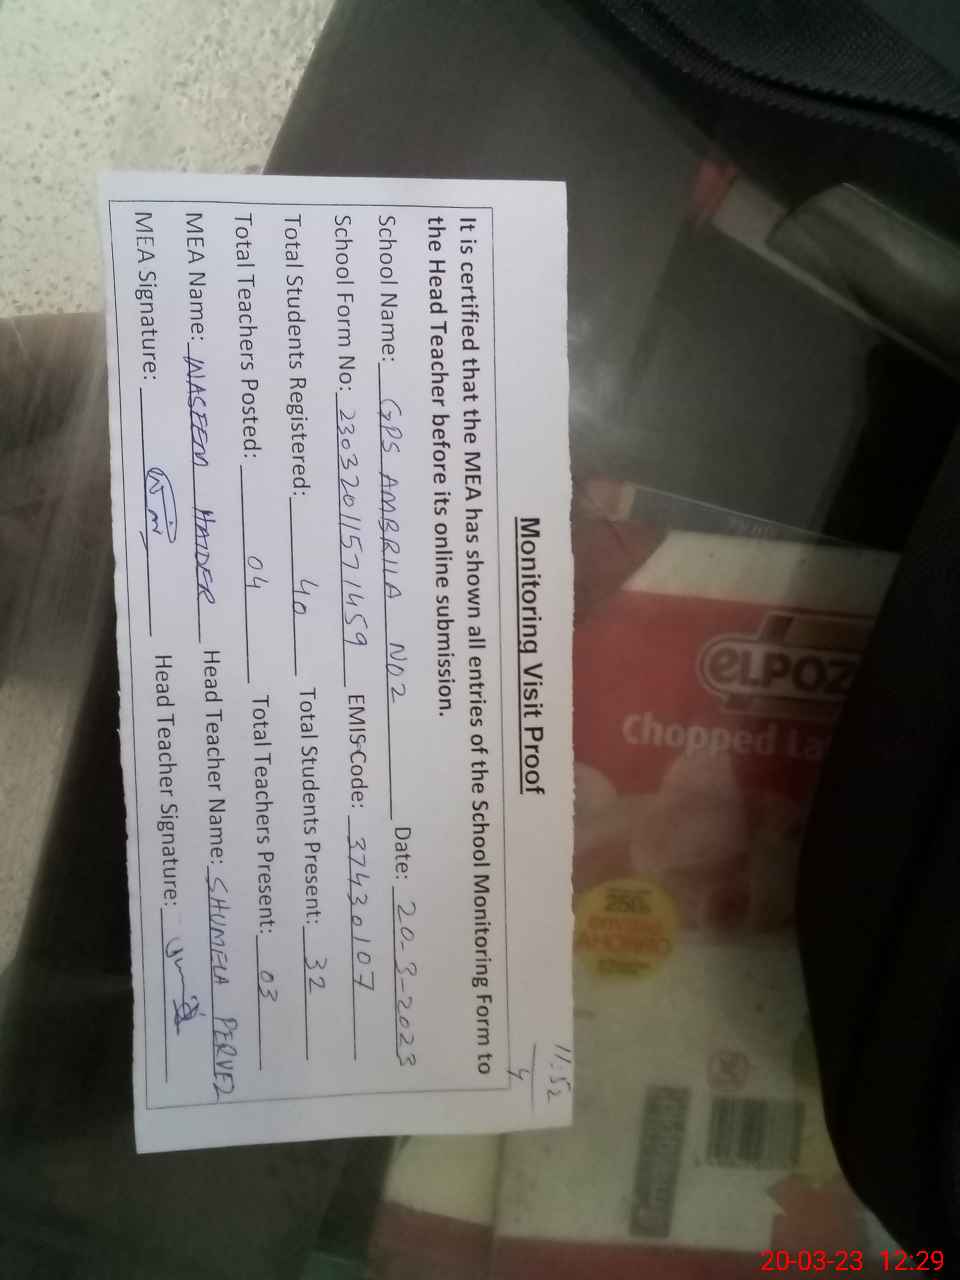 11:52
4
Monitoring Visit Proof
It is certified that the MEA has shown all entries of the School Monitoring Form to
the Head Teacher before its online submission.
School Name: GPS AMBRILA NO2 Date: 20-3-2023
School Form No: 2303201157 1459 EMIS Code: 37430107
Total Students Registered: 40 Total Students Present: 32
Total Teachers Posted: 04 Total Teachers Present: 03
MEA Name: WASEEM HAIDER Head Teacher Name: SHUMELA PERVEZ
MEA Signature: Head Teacher Signature:
ELPOZ
Chopped
250%
AHORRO
20-03-23 12:29